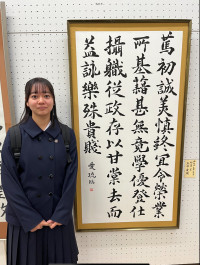 篤初誠美慎終宜令榮業
所基籍甚無竟學優登仕
攝職從政存以甘棠去而
益詠樂殊貴賤